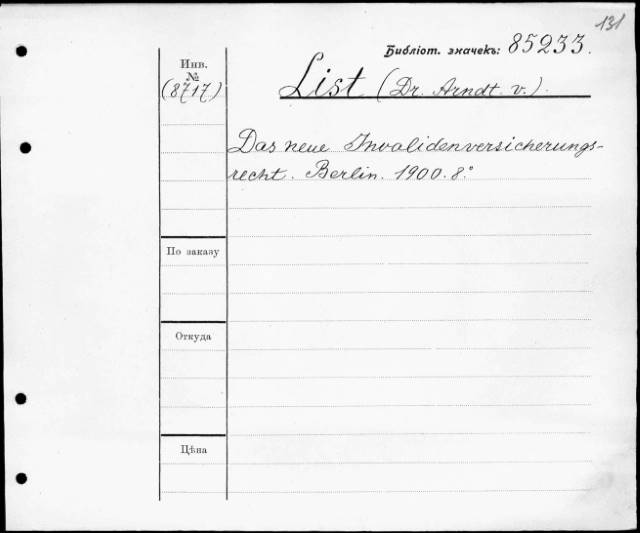 131
Библіот. значекъ: 85233.
Инв.
№
(8717)
List (Dr. Arndt. v.).
Das neue Invalidenversicherungs-
recht. Berlin. 1900. 8.°
По заказу
Откуда
Цѣна